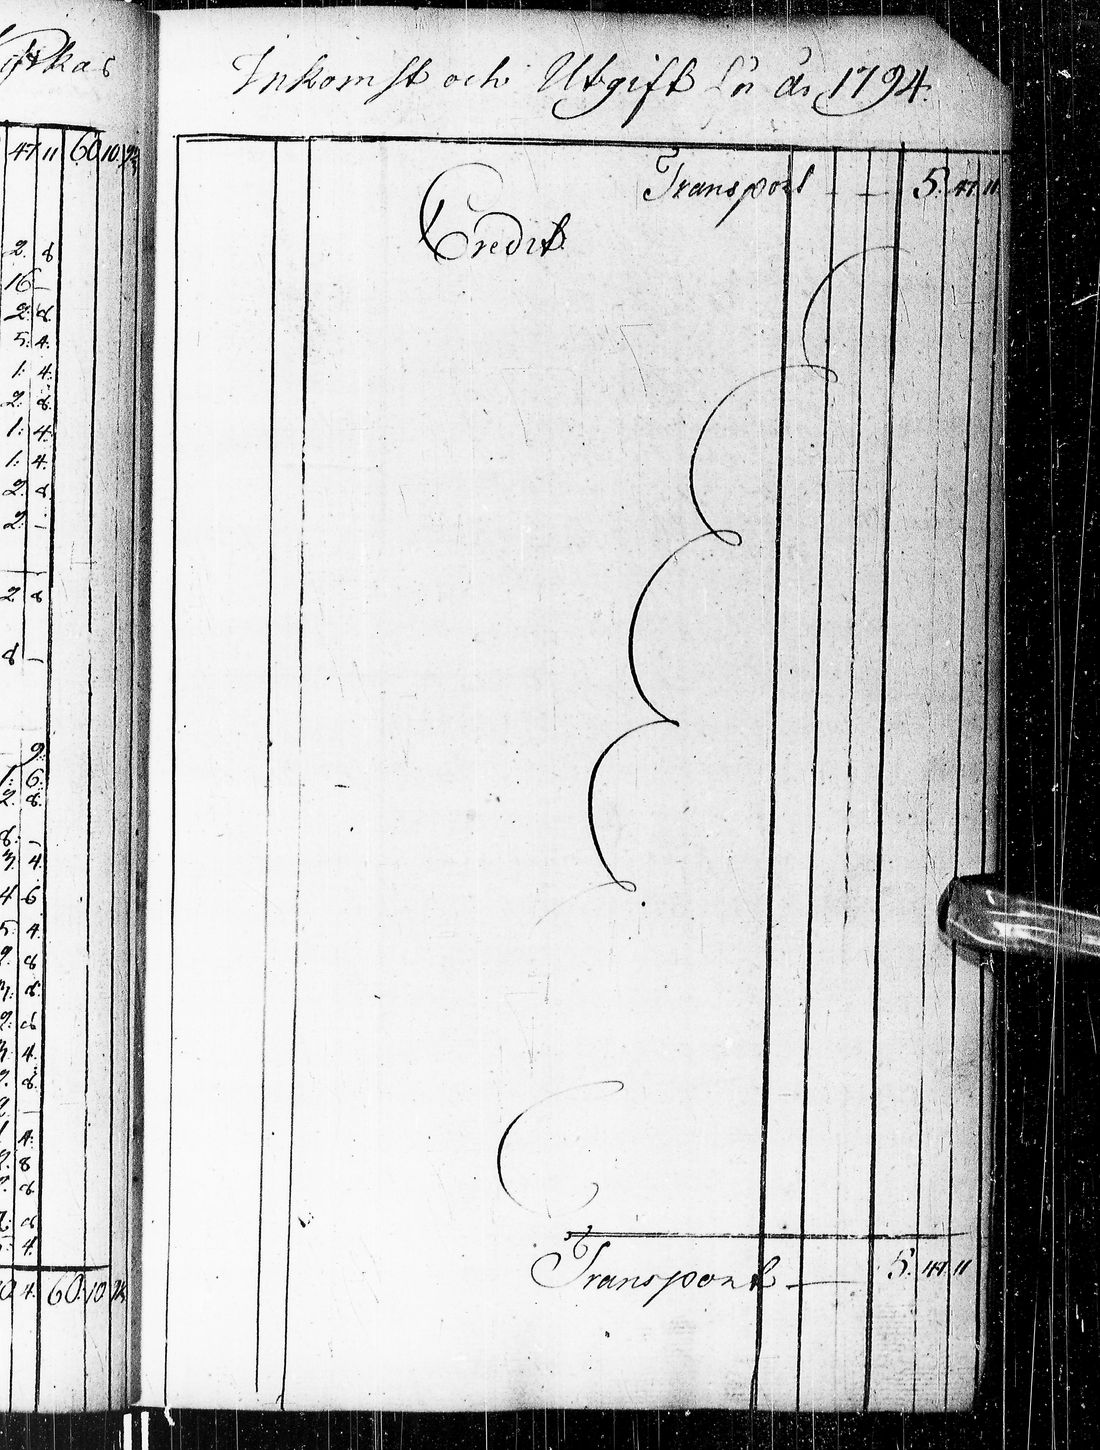 Inkomst och Utgift för år 1794.
Transport — — 5. 47. 11
Credit
Transport — 5. 47. 11
47 11 60 10
2. 8
16 —
2. 8.
5. 4.
1. 4.
2. 8.
1. 4.
1. 4.
2. 8
2. —
2 8
8 —
9.
1. 6.
2. 8.
8. —
3. 4.
4 6
5. 4.
2. 8
3. 8.
2. 8
3. 4.
2. 8.
4.
8
8
8
4.
4. 60 10